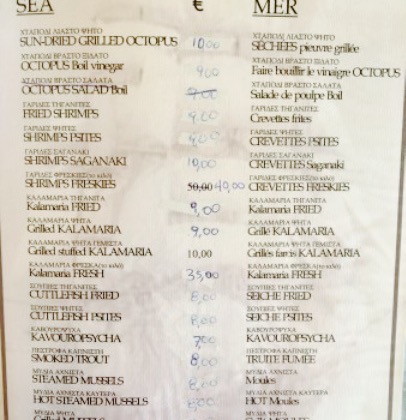 SEA € MER
ΧΤΑΠΟΔΙ ΛΙΑΣΤΟ ΨΗΤΟ ΧΤΑΠΟΔΙ ΛΙΑΣΤΟ ΨΗΤΟ
SUN-DRIED GRILLED OCTOPUS 10,00 SECHEES pieuvre grillée
ΧΤΑΠΟΔΙ ΒΡΑΣΤΟ ΞΙΔΑΤΟ ΧΤΑΠΟΔΙ ΒΡΑΣΤΟ ΞΙΔΑΤΟ
OCTOPUS Boil vinegar 9,00 Faire bouillir le vinaigre OCTOPUS
ΧΤΑΠΟΔΙ ΒΡΑΣΤΟ ΣΑΛΑΤΑ ΧΤΑΠΟΔΙ ΒΡΑΣΤΟ ΣΑΛΑΤΑ
OCTOPUS SALAD Boil 9,00 Salade de poulpe Boil
ΓΑΡΙΔΕΣ ΤΗΓΑΝΙΤΕΣ ΓΑΡΙΔΕΣ ΤΗΓΑΝΙΤΕΣ
FRIED SHRIMPS 9,00 Crevettes frites
ΓΑΡΙΔΕΣ ΨΗΤΕΣ ΓΑΡΙΔΕΣ ΨΗΤΕΣ
SHRIMPS PSITES 9,00 CREVETTES PSITES
ΓΑΡΙΔΕΣ ΣΑΓΑΝΑΚΙ ΓΑΡΙΔΕΣ ΣΑΓΑΝΑΚΙ
SHRIMPS SAGANAKI 10,00 CREVETTES Saganaki
ΓΑΡΙΔΕΣ ΦΡΕΣΚΙΕΣ(το κιλό) ΓΑΡΙΔΕΣ ΦΡΕΣΚΙΕΣ(το κιλό)
SHRIMPS FRESKIES 50,00 40,00 CREVETTES FRESKIES
ΚΑΛΑΜΑΡΙΑ ΤΗΓΑΝΙΤΑ ΚΑΛΑΜΑΡΙΑ ΤΗΓΑΝΙΤΑ
Kalamaria FRIED 9,00 Kalamaria FRIED
ΚΑΛΑΜΑΡΙΑ ΨΗΤΑ ΚΑΛΑΜΑΡΙΑ ΨΗΤΑ
Grilled KALAMARIA 9,00 Grillé KALAMARIA
ΚΑΛΑΜΑΡΙΑ ΨΗΤΑ ΓΕΜΙΣΤΑ ΚΑΛΑΜΑΡΙΑ ΨΗΤΑ ΓΕΜΙΣΤΑ
Grilled stuffed KALAMARIA 10,00 Grillés farcis KALAMARIA
ΚΑΛΑΜΑΡΙΑ ΦΡΕΣΚΑ(το κιλό) ΚΑΛΑΜΑΡΙΑ ΦΡΕΣΚΑ(το κιλό)
Kalamaria FRESH 35,00 Kalamaria FRESH
ΣΟΥΠΙΕΣ ΤΗΓΑΝΙΤΕΣ ΣΟΥΠΙΕΣ ΤΗΓΑΝΙΤΕΣ
CUTTLEFISH FRIED 8,00 SEICHE FRIED
ΣΟΥΠΙΕΣ ΨΗΤΕΣ ΣΟΥΠΙΕΣ ΨΗΤΕΣ
CUTTLEFISH PSITES 8,00 SEICHE PSITES
ΚΑΒΟΥΡΟΨΥΧΑ ΚΑΒΟΥΡΟΨΥΧΑ
KAVOUROPSYCHA 7,00 KAVOUROPSYCHA
ΠΕΣΤΡΟΦΑ ΚΑΠΝΙΣΤΗ ΠΕΣΤΡΟΦΑ ΚΑΠΝΙΣΤΗ
SMOKED TROUT 8,00 TRUITE FUMÉE
ΜΥΔΙΑ ΑΧΝΙΣΤΑ ΜΥΔΙΑ ΑΧΝΙΣΤΑ
STEAMED MUSSELS 8,00 Moules
ΜΥΔΙΑ ΑΧΝΙΣΤΑ ΚΑΥΤΕΡΑ ΜΥΔΙΑ ΑΧΝΙΣΤΑ ΚΑΥΤΕΡΑ
HOT STEAMED MUSSELS 8,00 HOT Moules
ΜΥΔΙΑ ΨΗΤΑ ΜΥΔΙΑ ΨΗΤΑ